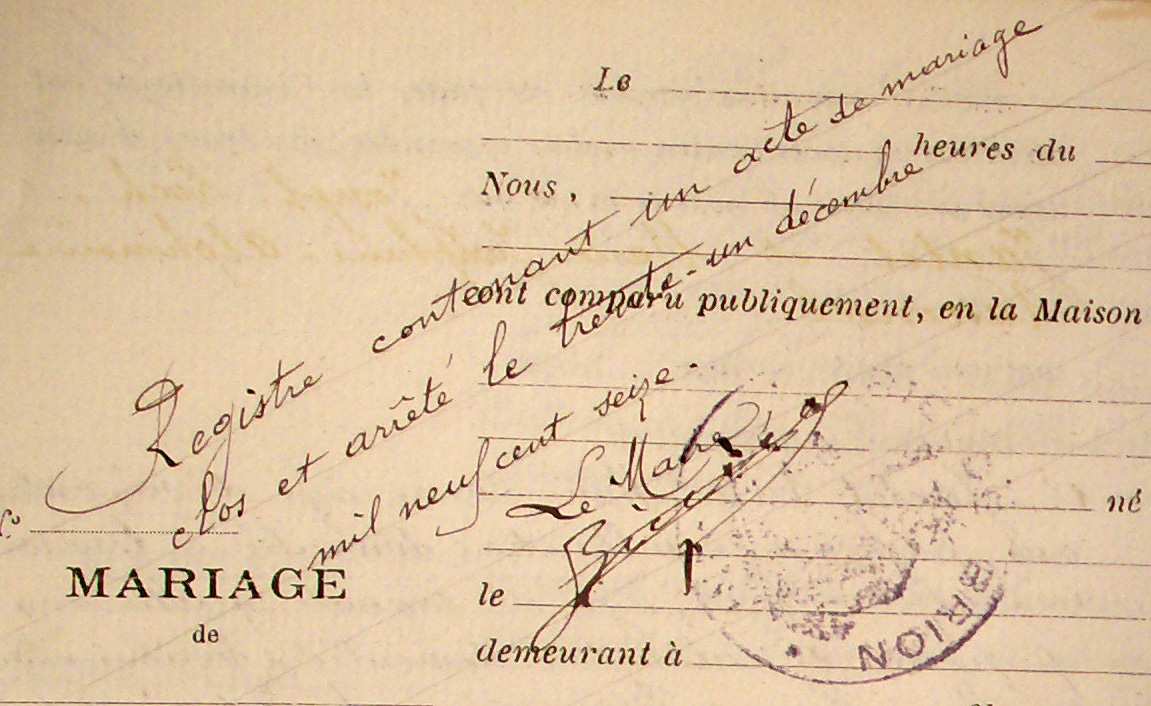 Le
heures du
Nous,
ont comparu publiquement, en la Maison
né
MARIAGE
de
le
demeurant à
Registre contenant un acte de mariage
clos et arrêté le trente-un décembre
mil neuf cent seize.
Le Maire